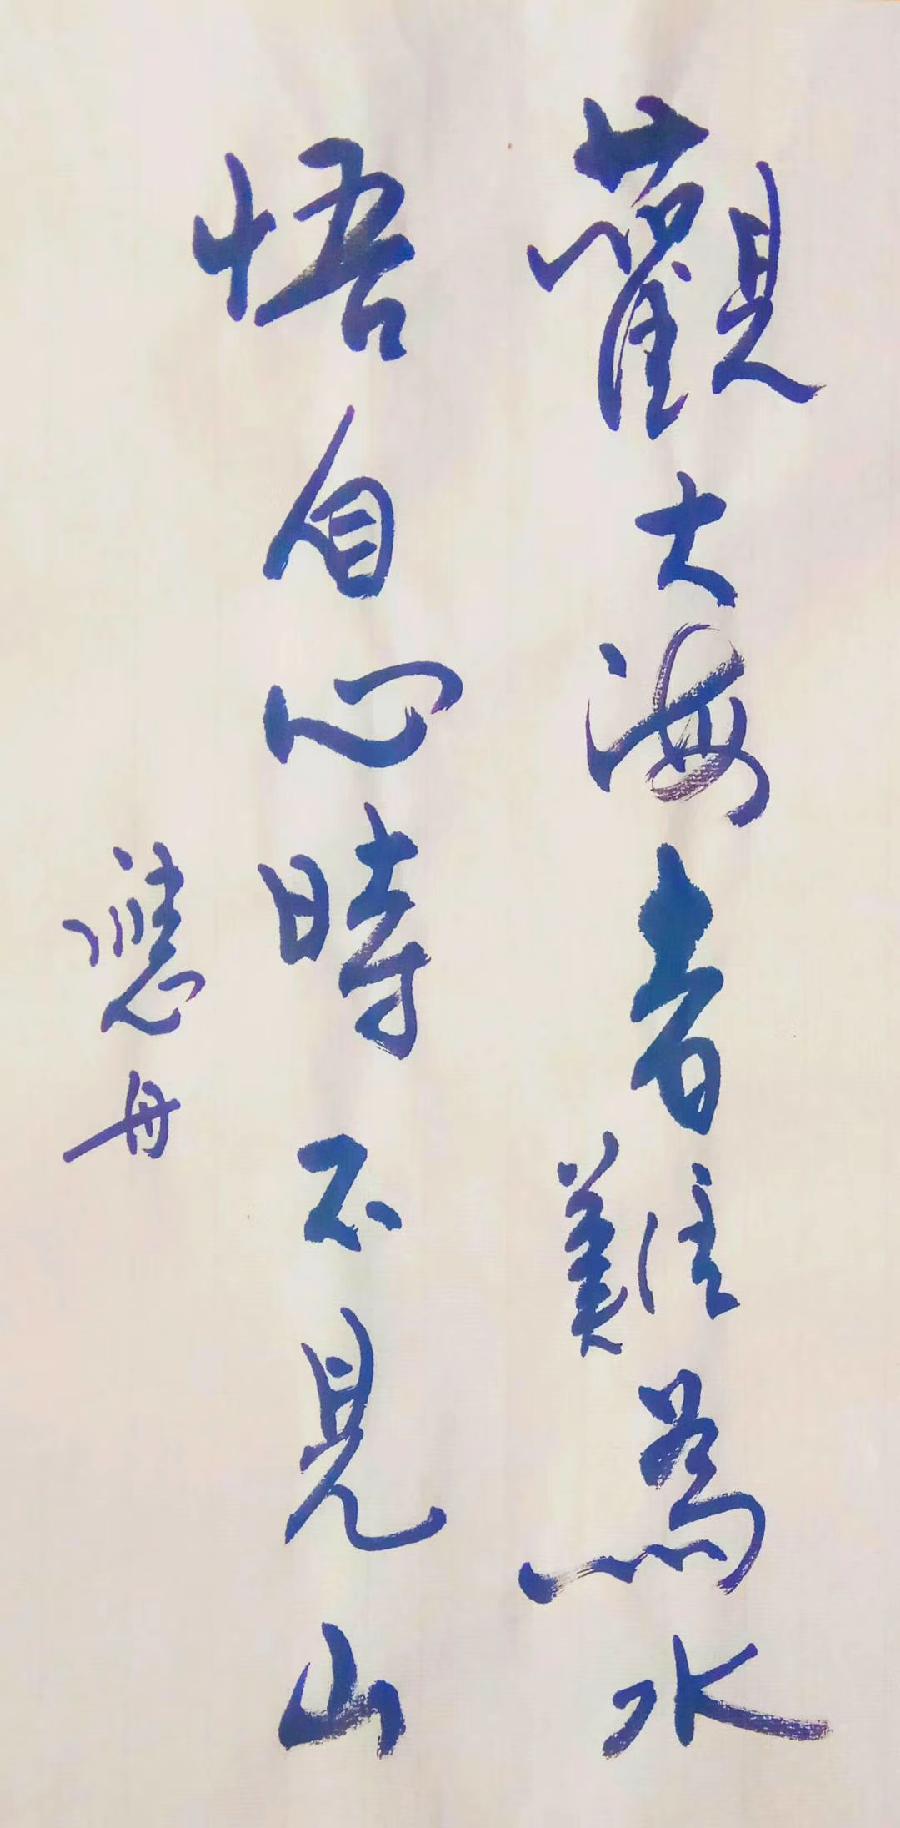 觀大海者難為水
悟自心時不見山
丹